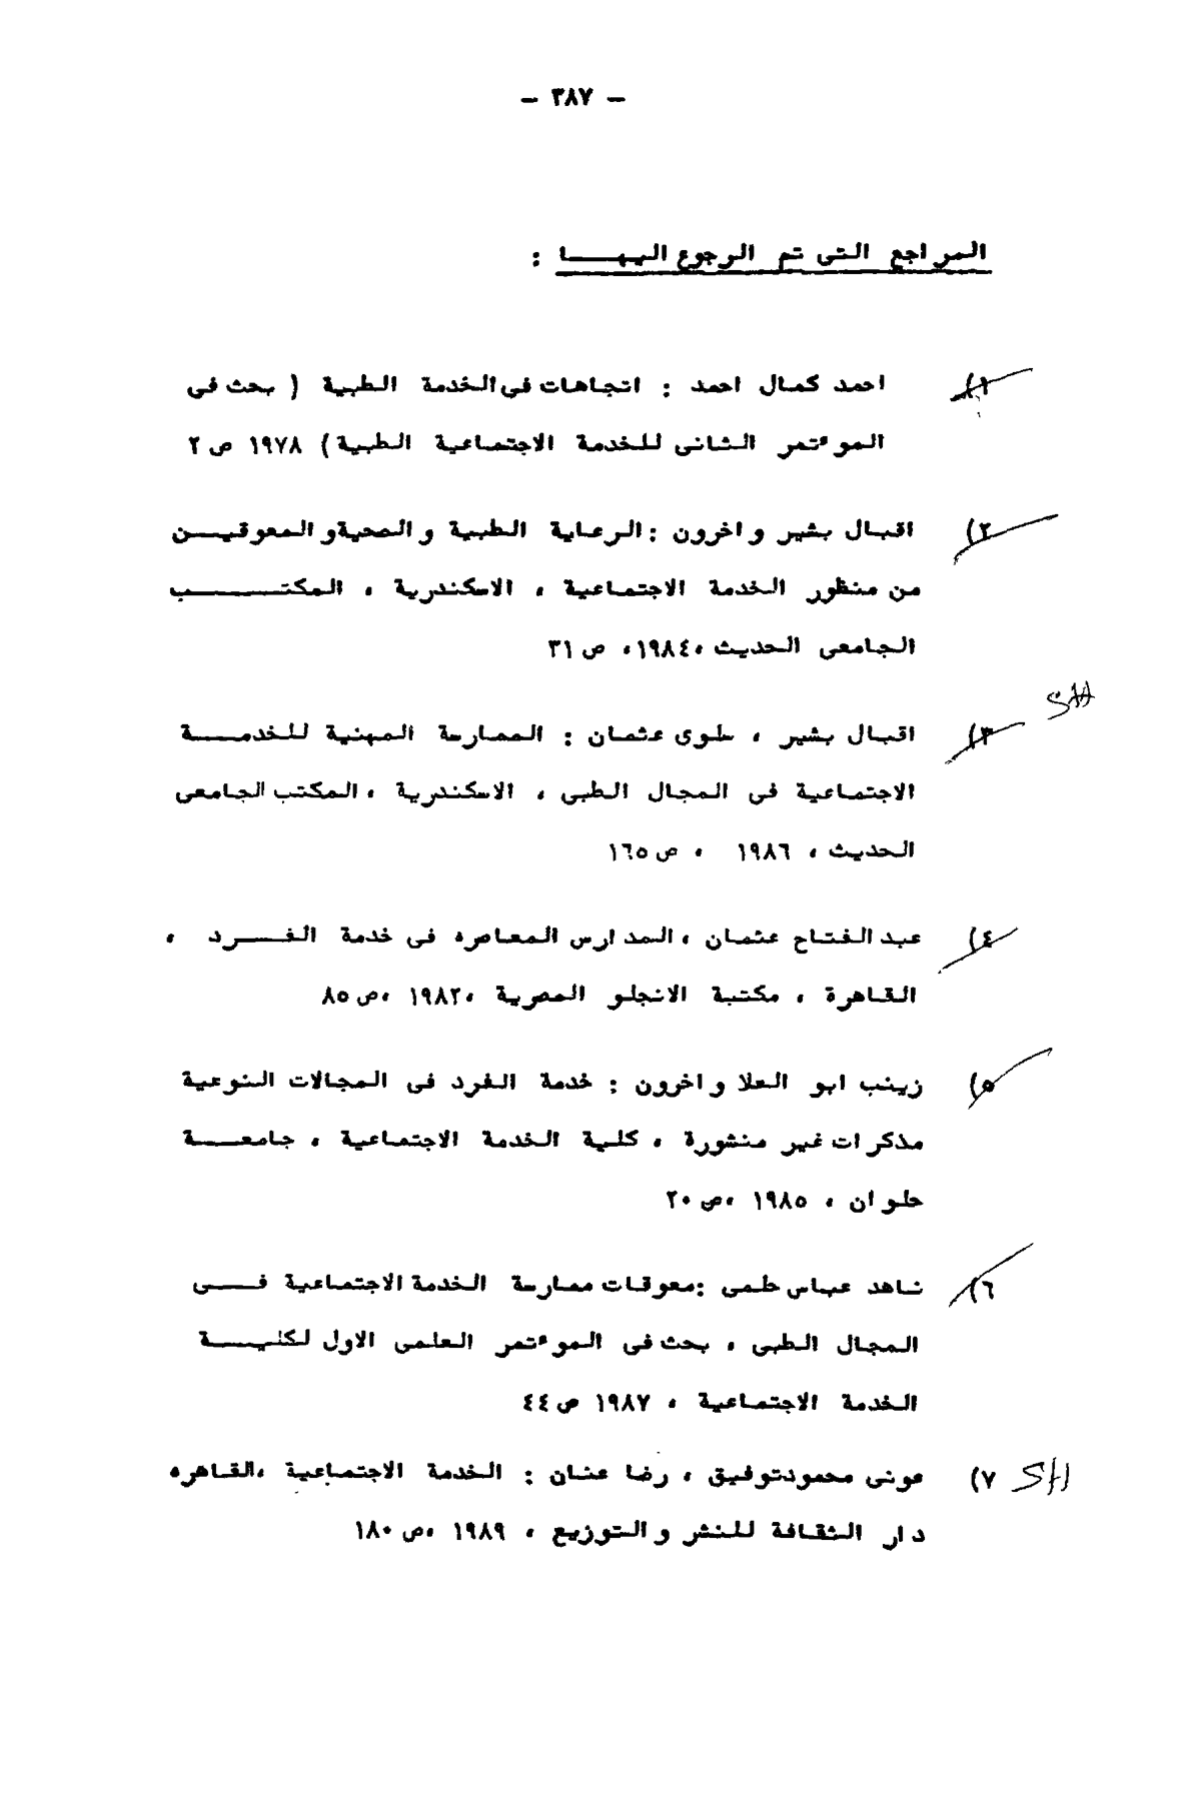 - ٣٨٧ -
المراجع التى تم الرجوع اليهـــا :
١) احمد كمال احمد : اتجاهات فى الخدمة الطبية ( بحث فى
الموءتمر الثانى للخدمة الاجتماعية الطبية) ١٩٧٨ ص ٢
٢) اقبال بشير واخرون : الرعاية الطبية والصحية والمعوقيـــن
من منظور الخدمة الاجتماعية ، الاسكندرية ، المكتـــــب
الجامعى الحديث ،١٩٨٤، ص ٣١
SH
٣) اقبال بشير ، سلوى عثمان : الممارسة المهنية للخدمـــة
الاجتماعية فى المجال الطبى ، الاسكندرية ، المكتب الجامعى
الحديث ، ١٩٨٦ ، ص ١٦٥
٤) عبد الفتاح عثمان ، المدارس المعاصره فى خدمة الفـــرد ،
القاهرة ، مكتبة الانجلو المصرية ،١٩٨٢ ،ص ٨٥
٥) زينب ابو العلا واخرون : خدمة الفرد فى المجالات النوعية
مذكرات غير منشورة ، كلية الخدمة الاجتماعية ، جامعـــة
حلوان ، ١٩٨٥ ،ص ٢٠
٦) ناهد عباس حلمى :معوقات ممارسة الخدمة الاجتماعية فـــى
المجال الطبى ، بحث فى الموءتمر العلمى الاول لكليـــة
الخدمة الاجتماعية ، ١٩٨٧ ص ٤٤
SH ٧) عونى محمود توفيق ، رضا عنان : الخدمة الاجتماعية ،القاهره
دار الثقافة للنشر والتوزيع ، ١٩٨٩ ،ص ١٨٠